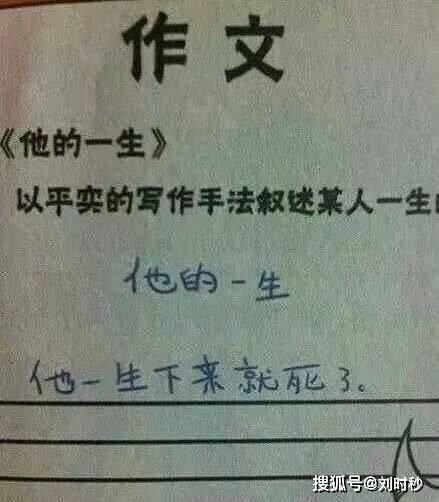 作文
《他的一生》
以平实的写作手法叙述某人一生的
他的一生
他一生下来就死了。
搜狐号@刘时秒